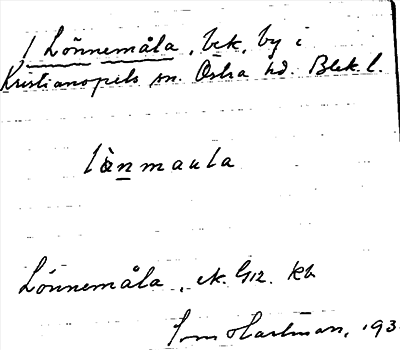 1 Lönnemåla, bek. by i
Kristianopels sn. Östra hd. Blek. l.
lönmaula
Lönnemåla, ek. 1/12. kb
Hartman, 193